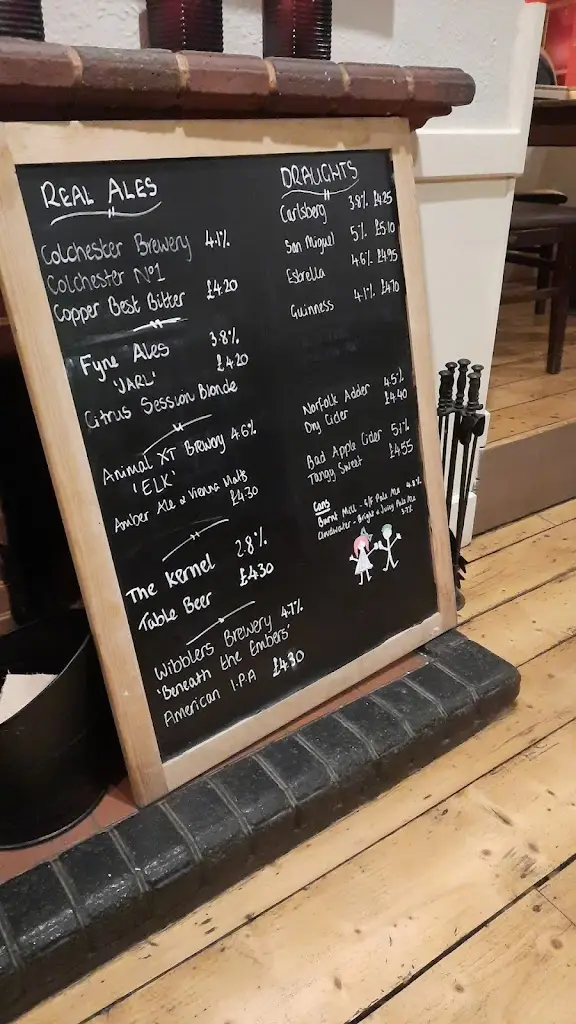 REAL ALES
Colchester Brewery 4.1%
Colchester Nº1
Copper Best Bitter £4.20
Fyne Ales 3.8%
'JARL' £4.20
Citrus Session Blonde
Animal XT Brewery 4.6%
'ELK'
Amber Ale w Vienna Malts
£4.30
The Kernel 2.8%
Table Beer £4.30
Wibblers Brewery 4.7%
'Beneath the Embers'
American I.P.A £4.30
DRAUGHTS
Carlsberg 3.8% £4.25
San Miguel 5% £5.10
Estrella 4.6% £4.95
Guinness 4.1% £4.70
Norfolk Adder 4.5%
Dry Cider £4.40
Bad Apple Cider 5.1%
Tangy Sweet £4.55
Cans
Burnt Mill - G/F Pale Ale
Cloudwater - Bright & Juicy Pale Ale
3.7%